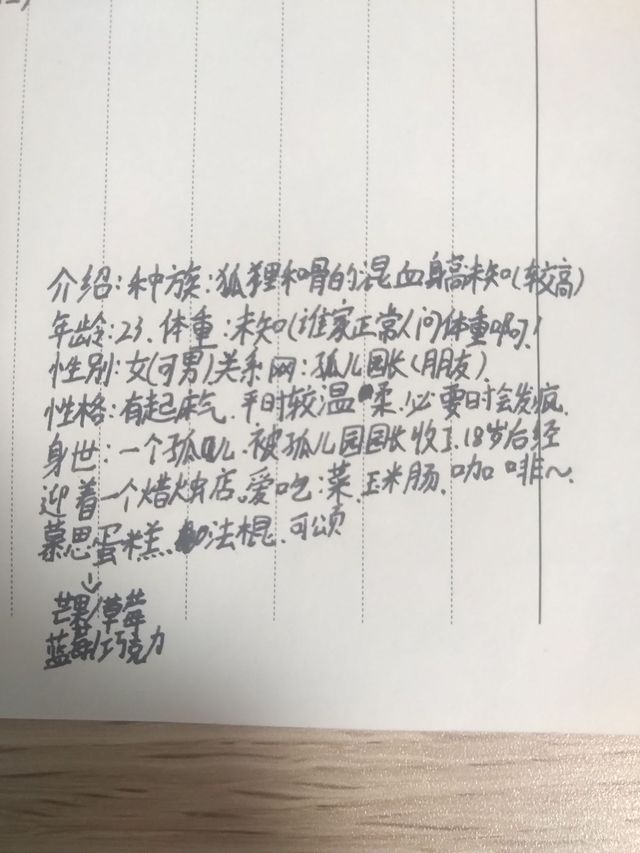 介绍:种族:狐狸和骨的混血身高未知(较高)
年龄:23.体重:未知(谁家正常人问体重啊?!
性别:女(可男)关系网:孤儿园长(朋友)
性格:有起床气.平时较温柔.必要时会发疯.
身世:一个孤儿.被孤儿园园长收了.18岁后经
迎着一个蜡烛店。爱吃:菜.玉米肠.咖啡~.
慕思蛋糕、法棍.可颂
芒果/草莓
蓝莓/巧克力